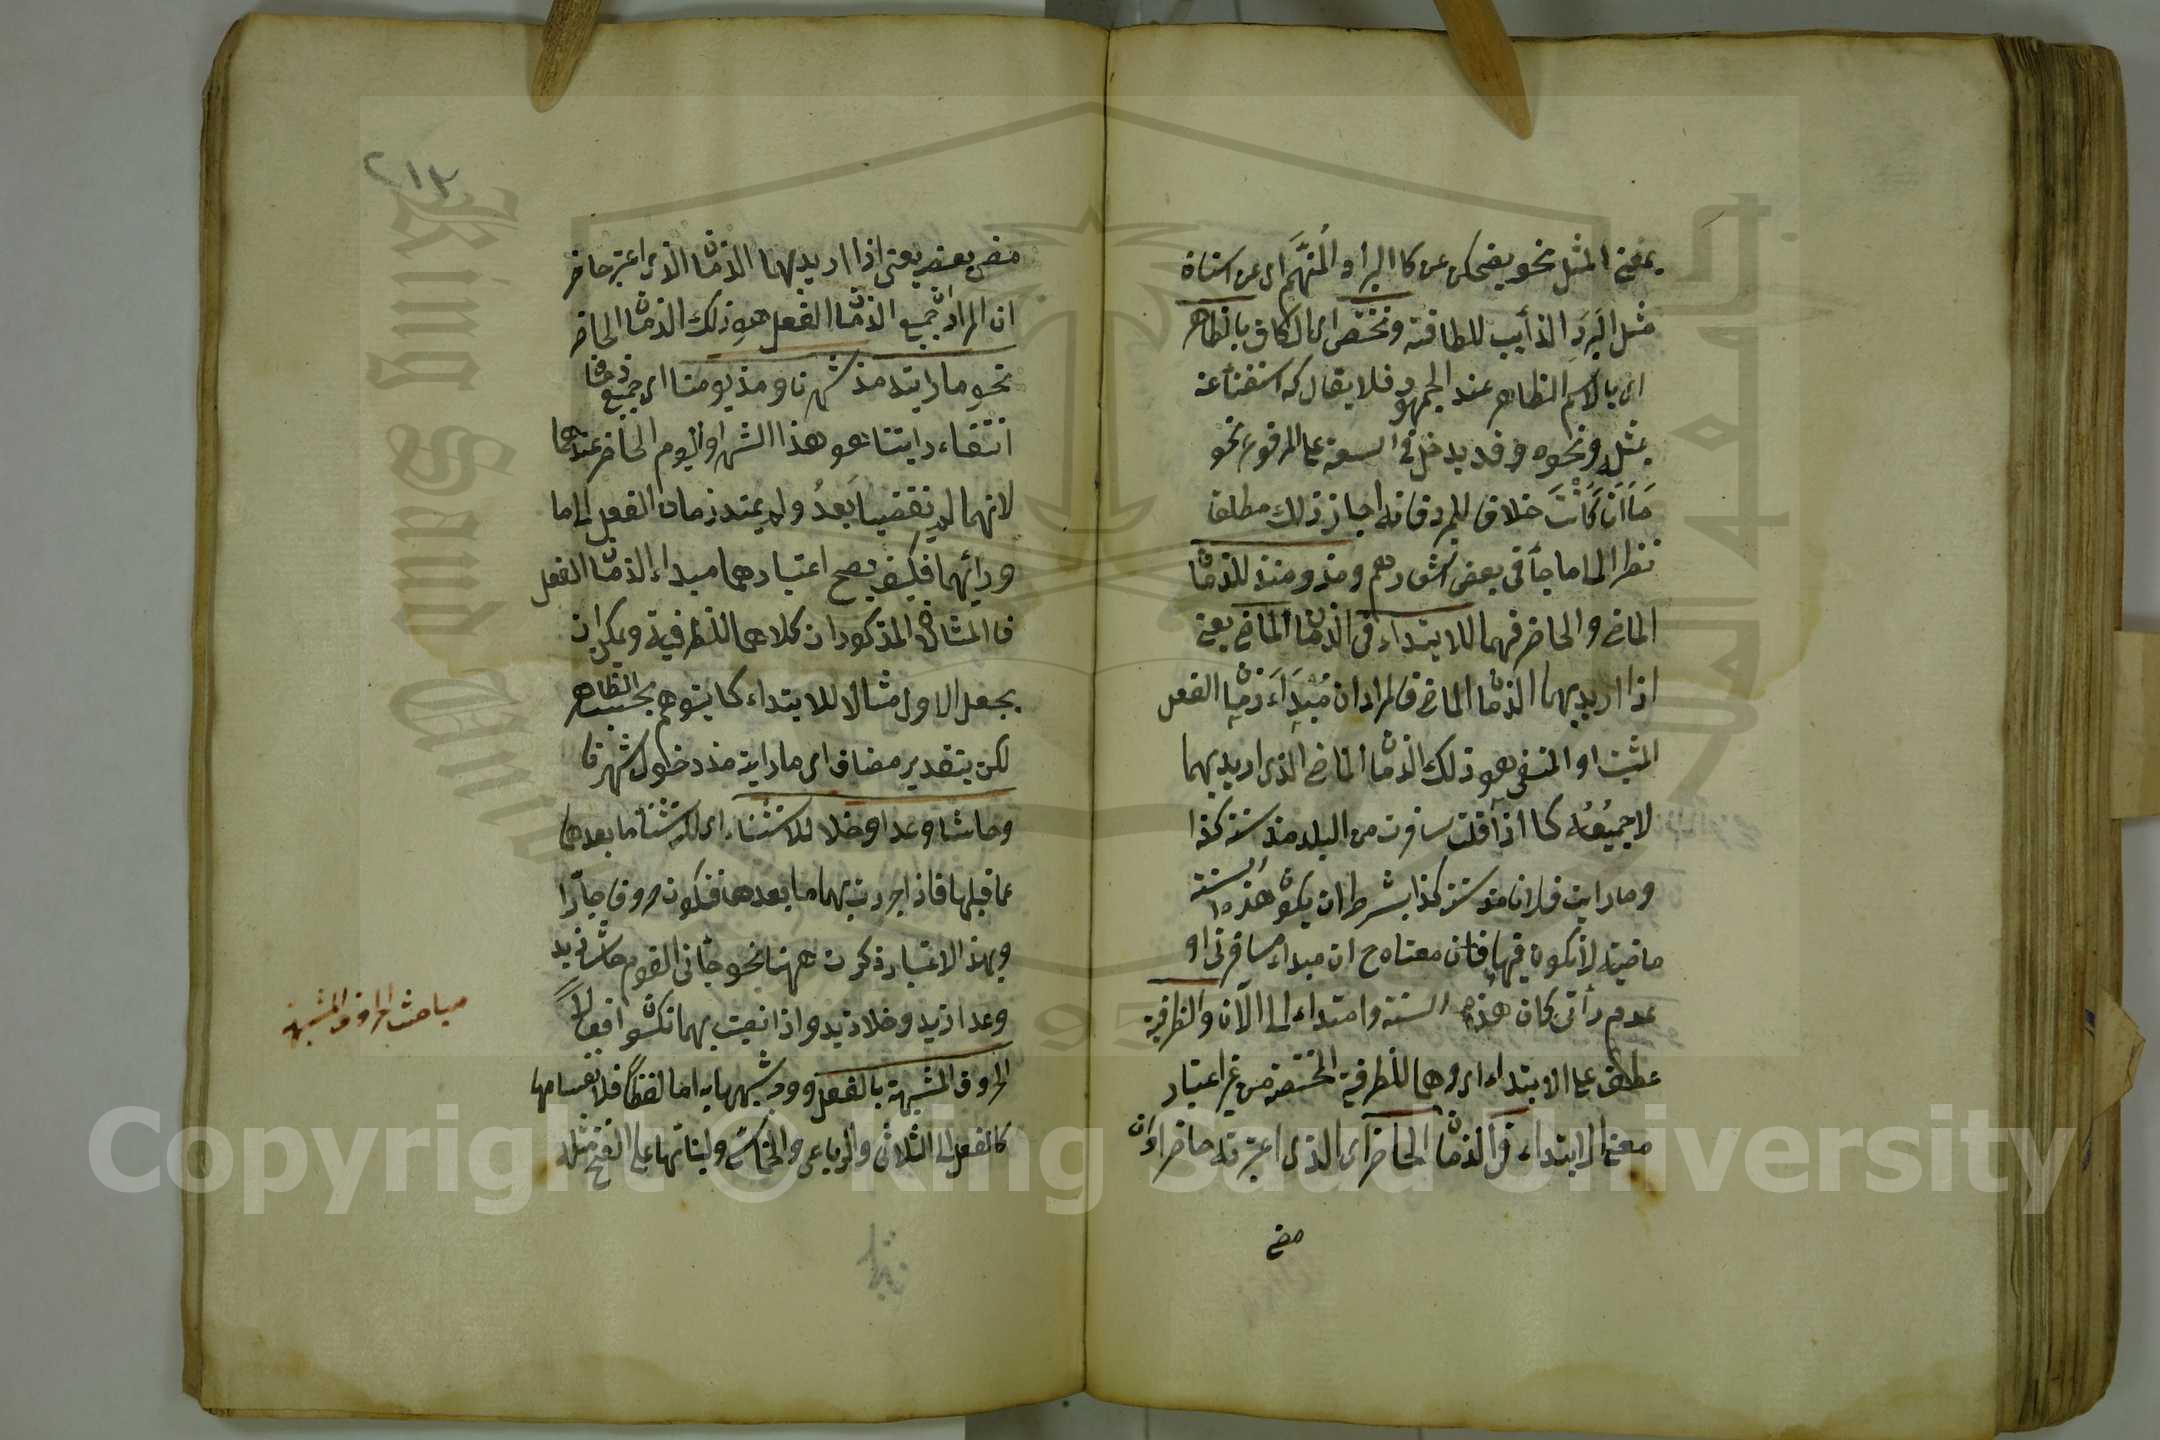 بمعنى المثل نحو يضحكن عن كالبرد المنهم اى عن اسنان
مثل البرد الذايب للطافته وتختص اى الكاف بالظاهر
اى بالاسم الظاهر عند الجمهور فلا يقال كه استغناء عنه
بمثل ونحوه وقد يدخل فى السعة على المرفوع نحو
ما انا كانت خلافا للمبرد فانه اجاز ذلك مطلقا
نظرا الى ما جاء فى بعض اشعارهم ومذ ومنذ للزمان
الماضى والحاضر فهما للابتداء فى الزمان الماضى يعنى
اذا اريد بهما الزمان الماضى فالمراد ان مبتداء زمان الفعل
المثبت او المنفى هو ذلك الزمان الماضى الذى اريد بهما
لا جميعه كما اذا قلت سافرت من البلد منذ سنة كذا
وما رايت فلانا منذ سنة كذا بشرط ان يكون هذه السنة
ماضية لا تكون فيها فان معناه ح ان مبداء مسافرتى او
عدم رأيتى كان هذه السنة وامتداده الى الآن والظرفية
عطف على الابتداء اى وهما للظرفية المختصة من غير اعتبار
معنى الابتداء فى الزمان الحاضر اى الذى اعتبرته حاضرا وان
مضى
٢١٣
مضى بعضه يعنى اذا اريد بهما الزمان الذى اعتبر حاضرا
ان المراد جميع الزمان الفعل هو ذلك الزمان الحاضر
نحو ما رايته مذ شهرنا ومذ يومنا اى جميع زمان
انتفاء رايتنا هو هذا الشهر او اليوم الحاضر عندهما
لانهما لم ينقضيا بعد ولم يمتد زمان الفعل الى ما
ورائهما فكيف يصح اعتبارهما مبداء الزمان الفعل
فالمثالان المذكوران كلاهما للظرفية ويمكن ان
يجعل الاول مثالا للابتداء كما يتوهم بحسب الظاهر
لكن بتقدير مضاف اى ما رايته مذ دخول شهرنا
وحاشا وعدا وخلا للاستثناء اى لاستثناء ما بعدها
عما قبلها فاذا جررت بهما ما بعدها فتكون حروفا جارا
وبهذا الاعتبار ذكرت ههنا نحو جاءنى القوم حاشا زيد
وعدا زيد وخلا زيد واذا نصبت بهما تكون افعالا
الحروف المشبهة بالفعل ووجه شبهها به اما لفظا فلانقسامها
كالفعل الى الثلاثى والرباعى والخماسى ولبنائها على الفتح مثله
مباحث الحروف المشبهة
King Saud University
Copyright © King Saud University